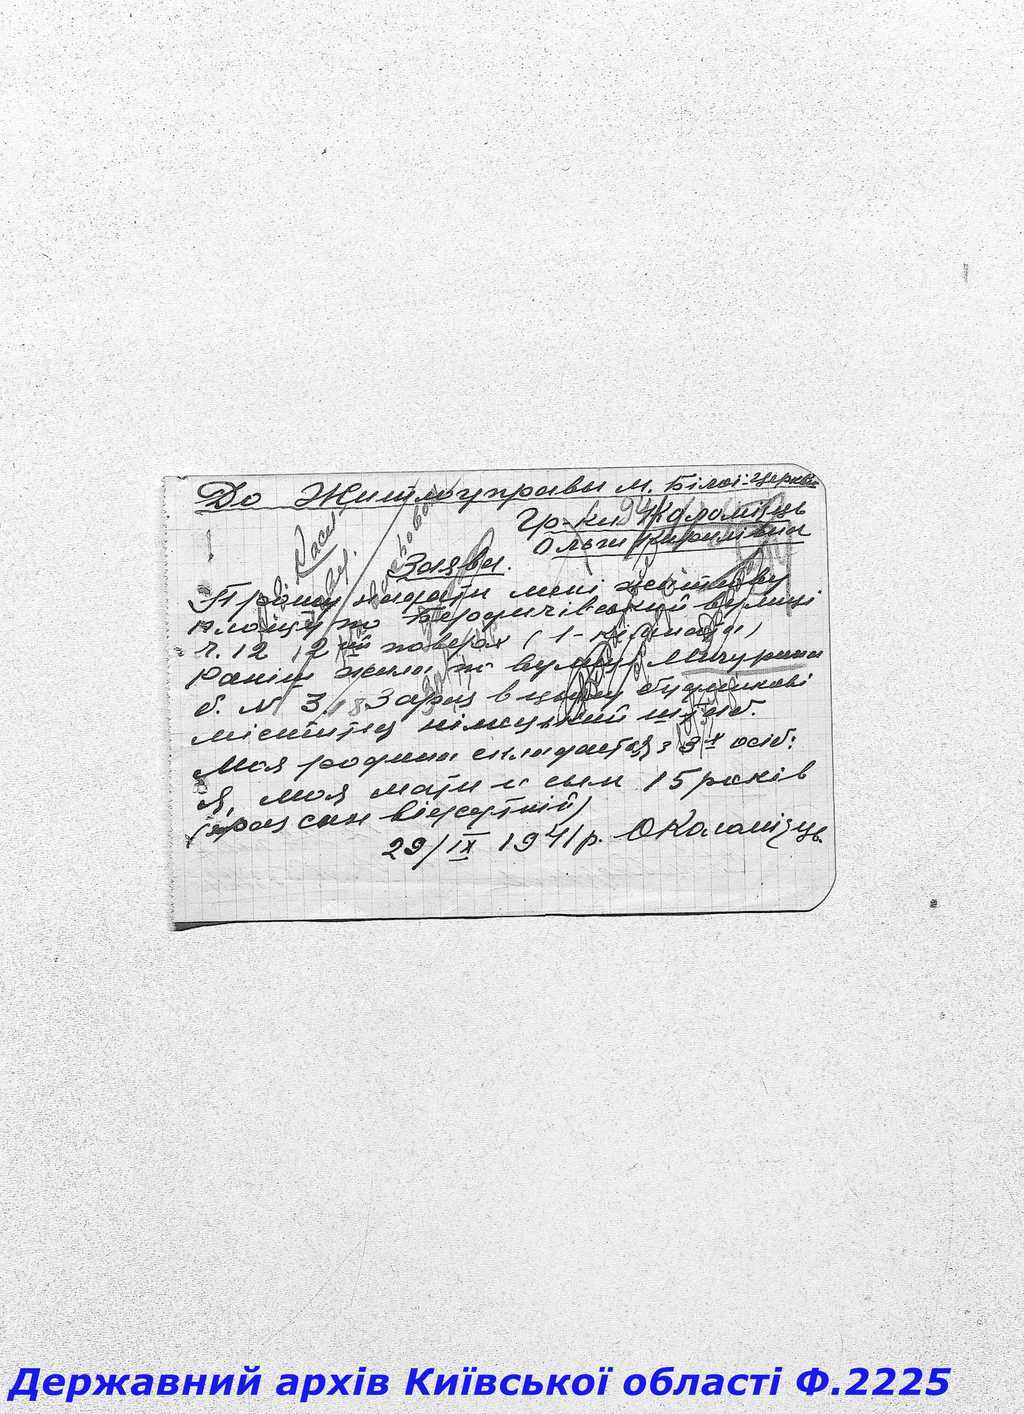 До Житлоуправи м. Білої-Церкви
Гр-ки Коломієць
Ольги Кирилівни
Заява.
Прошу надати мені житлову
площу по Бердичівській вулиці
ч. 12, 2ий поверх (1-кімната)
Раніш жила по вулиці Мичурина
б. № 3. Зараз в цьому будинкові
міститця німецький штаб.
Моя родина складається з 3х осіб:
Я, моя мати и син 15 років
(зараз син відсутній)
29/IX 1941р. ОКоломієць
Державний архів Київської області Ф.2225